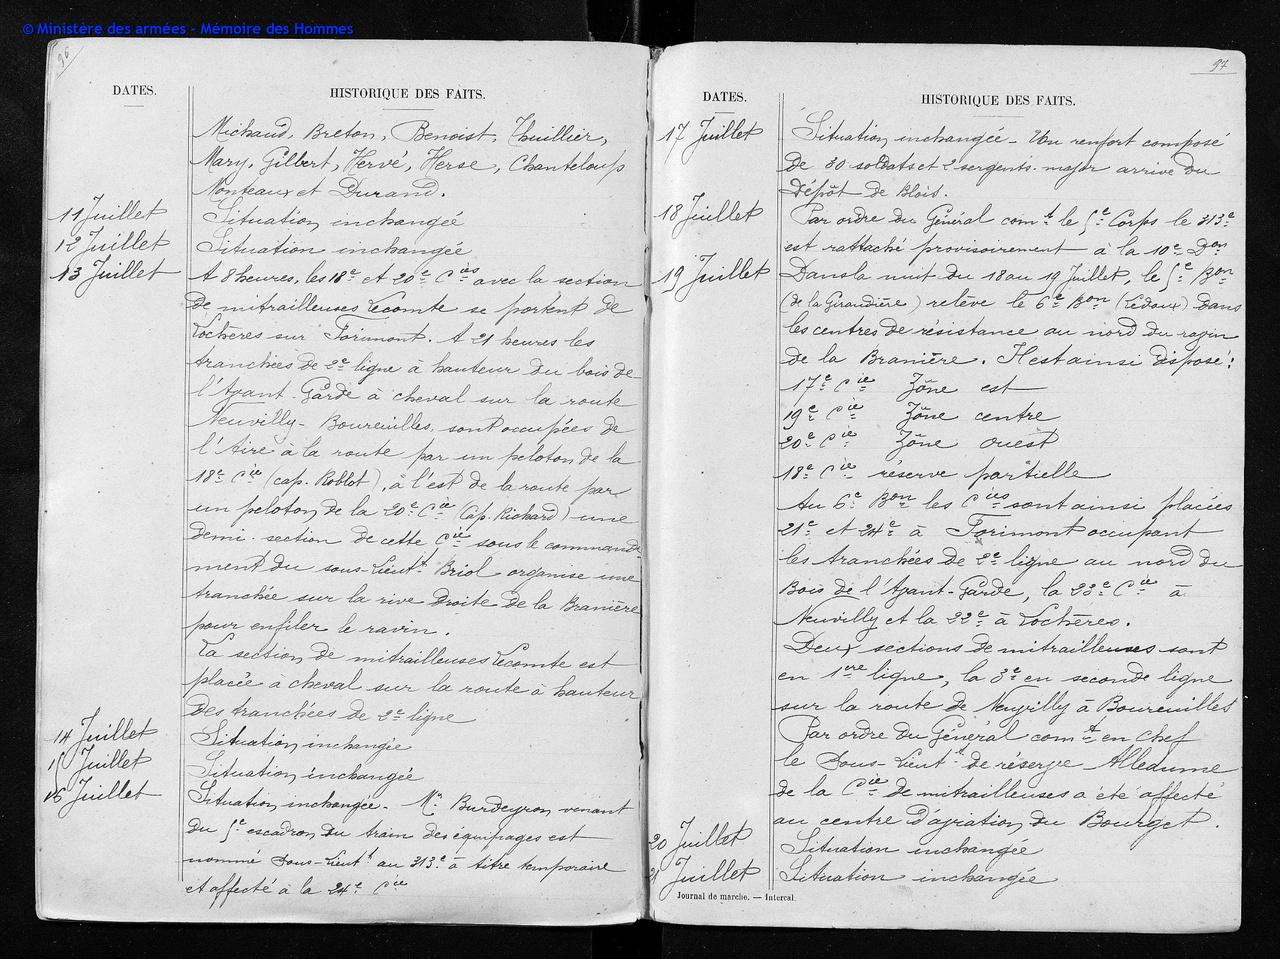 © Ministère des armées - Mémoire des Hommes
96
DATES.
HISTORIQUE DES FAITS.
Michaud, Breton, Benoist, Thuillier,
Mary, Gilbert, Hervé, Herse, Chanteloup
Monteaux et Durand.
11 Juillet Situation inchangée
12 Juillet Situation inchangée
13 Juillet A 8 heures, les 18e et 20e Cies avec la section
de mitrailleuses Lecomte se portent de
Lochères sur Forimont. A 21 heures les
tranchées de 2e ligne à hauteur du bois de
l'Avant-Garde à cheval sur la route
Neuvilly-Boureuilles, sont occupées de
l'Aire à la route par un peloton de la
18e Cie (cap. Roblot), à l'est de la route par
un peloton de la 20e Cie (Cap. Richard) une
demi-section de cette Cie sous le commande-
ment du sous-Lieutt Briol organise une
tranchée sur la rive droite de la Branière
pour enfiler le ravin.
La section de mitrailleuses Lecomte est
placée à cheval sur la route à hauteur
des tranchées de 2e ligne
14 Juillet Situation inchangée
15 Juillet Situation inchangée
16 Juillet Situation inchangée - Mr Burdeyron venant
du 5e escadron du train des équipages est
nommé Sous-Lieutt au 313e à titre temporaire
et affecté à la 24e Cie
97
DATES.
HISTORIQUE DES FAITS.
17 Juillet Situation inchangée - Un renfort composé
de 30 soldats et 2 sergents-major arrive du
dépôt de Blois.
18 Juillet Par ordre du Général comt le 5e Corps le 313e
est rattaché provisoirement à la 10e Don
19 Juillet Dans la nuit du 18 au 19 Juillet, le 5e Bon
(de la Giraudière) relève le 6e Bon (Ledoux) dans
les centres de résistance au nord du ravin
de la Branière. Il est ainsi disposé :
17e Cie Zône est
19e Cie Zône centre
20e Cie Zône ouest
18e Cie réserve partielle
Au 6e Bon les Cies sont ainsi placées
21e et 24e à Forimont occupant
les tranchées de 2e ligne au nord du
Bois de l'Avant-Garde, la 23e Cie à
Neuvilly et la 22e à Lochères.
Deux sections de mitrailleuses sont
en 1ère ligne, la 3e en seconde ligne
sur la route de Neuvilly à Boureuilles
Par ordre du Général comt en chef
le Sous-Lieutt de réserve Alleaume
de la Cie de mitrailleuses a été affecté
au centre d'aviation du Bourget.
20 Juillet Situation inchangée
21 Juillet Situation inchangée
Journal de marche. — Intercal.